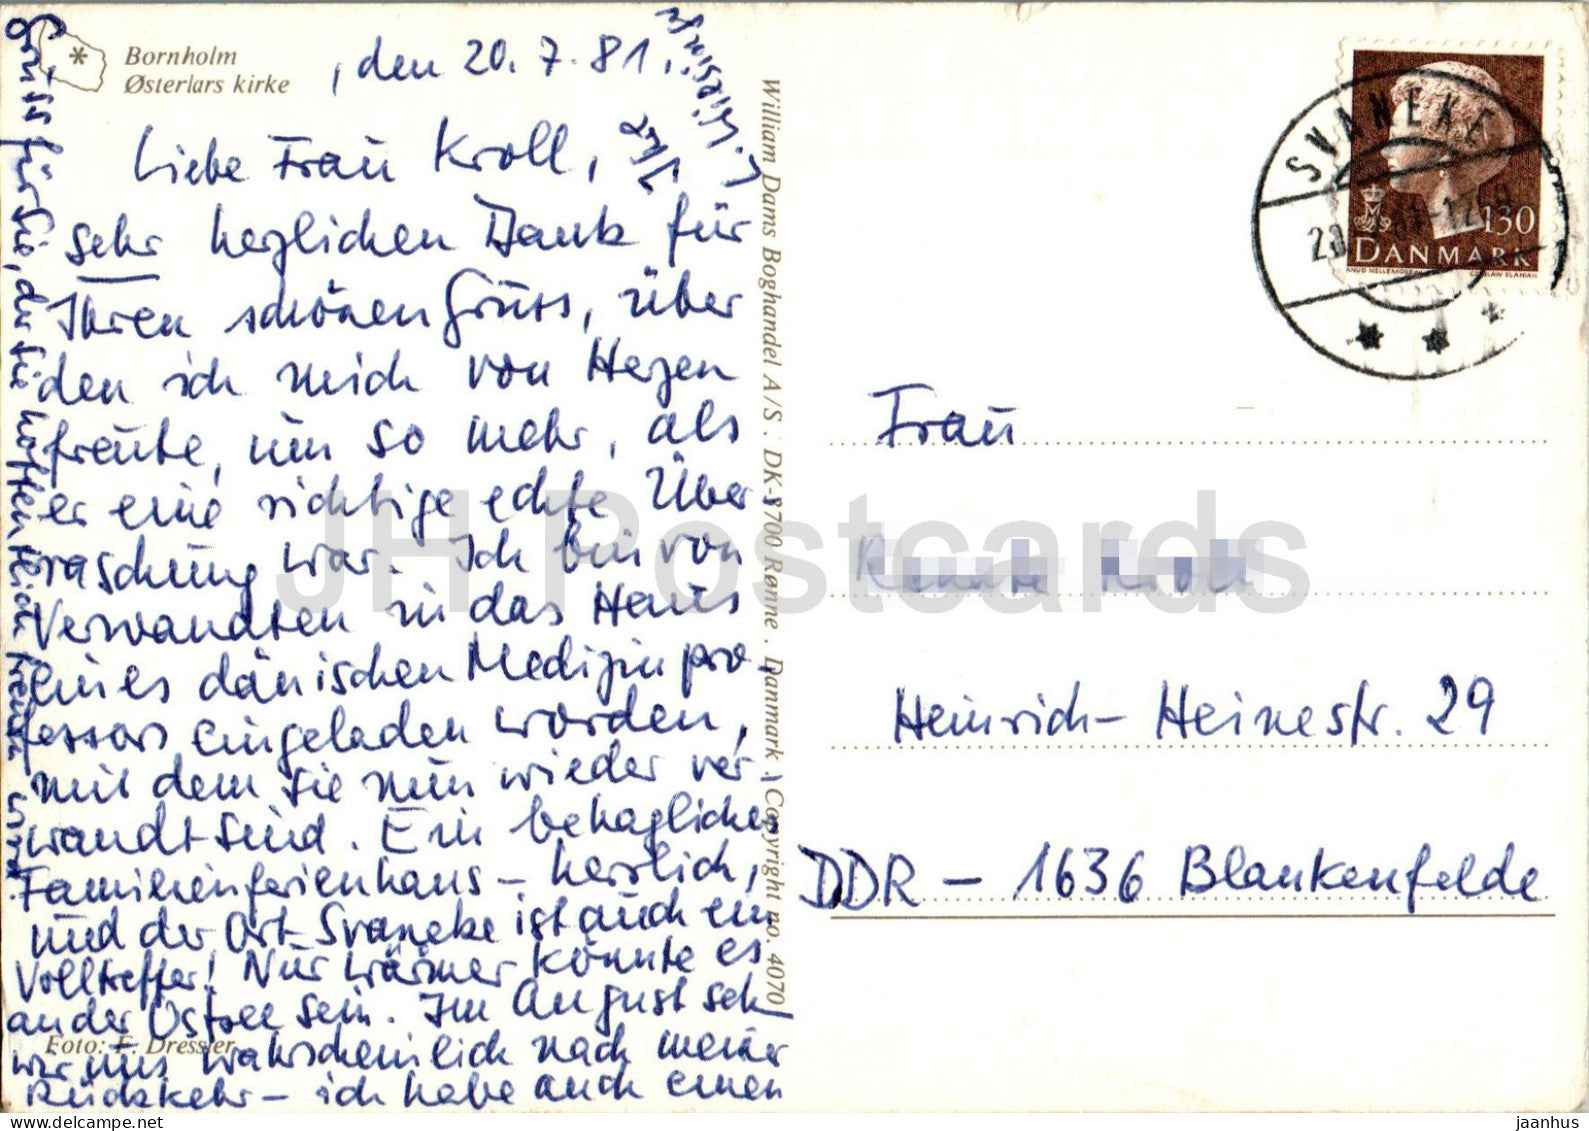 Bornholm
Østerlars kirke
, den 20.7.81.
Liebe Frau Kroll,
sehr herzlichen Dank für
Ihren schönen Gruss, über
den ich mich von Herzen
freute, um so mehr, als
er eine richtige echte Über
raschung war. Ich bin von
Verwandten in das Haus
eines dänischen Medizinpro-
fessors eingeladen worden,
mit dem sie nun wieder ver-
wandt sind. Ein behagliches
Familienferienhaus – herrlich,
und der Ort Svaneke ist auch ein
Volltreffer! Nur wärmer könnte es
an der Ostsee sein. Im August sehn
wir uns wahrscheinlich nach meiner
Rückkehr – ich habe auch einen
Gruss für Sie, der Sie
freuen wird.
Ihre
Foto: F. Dressler
William Dams Boghandel A/S . DK-3700 Rønne . Danmark . Copyright no. 4070
SVANEKE
130
DANMARK
Frau
Heinrich-Heinestr. 29
DDR – 1636 Blankenfelde
JH Postcards
jaanhus